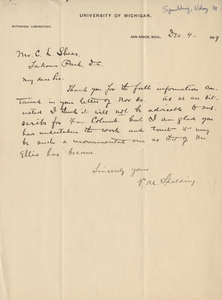 Spalding, Volney M
UNIVERSITY OF MICHIGAN.
BOTANICAL LABORATORY.
ANN ARBOR, MICH., Dec. 4. 1899
Mr. C. L. Shear,
Takoma Park D.C.
My dear Sir.
Thank you for the full information con-
tained in your letter of Nov 30. As at sit-
uated I think it will not be advisable to sub-
scribe for the Columb. but I am glad you
have undertaken the work and trust it may
be such a monumental one as that of Mr
Ellis has become.
Sincerely yours
V. M. Spalding.